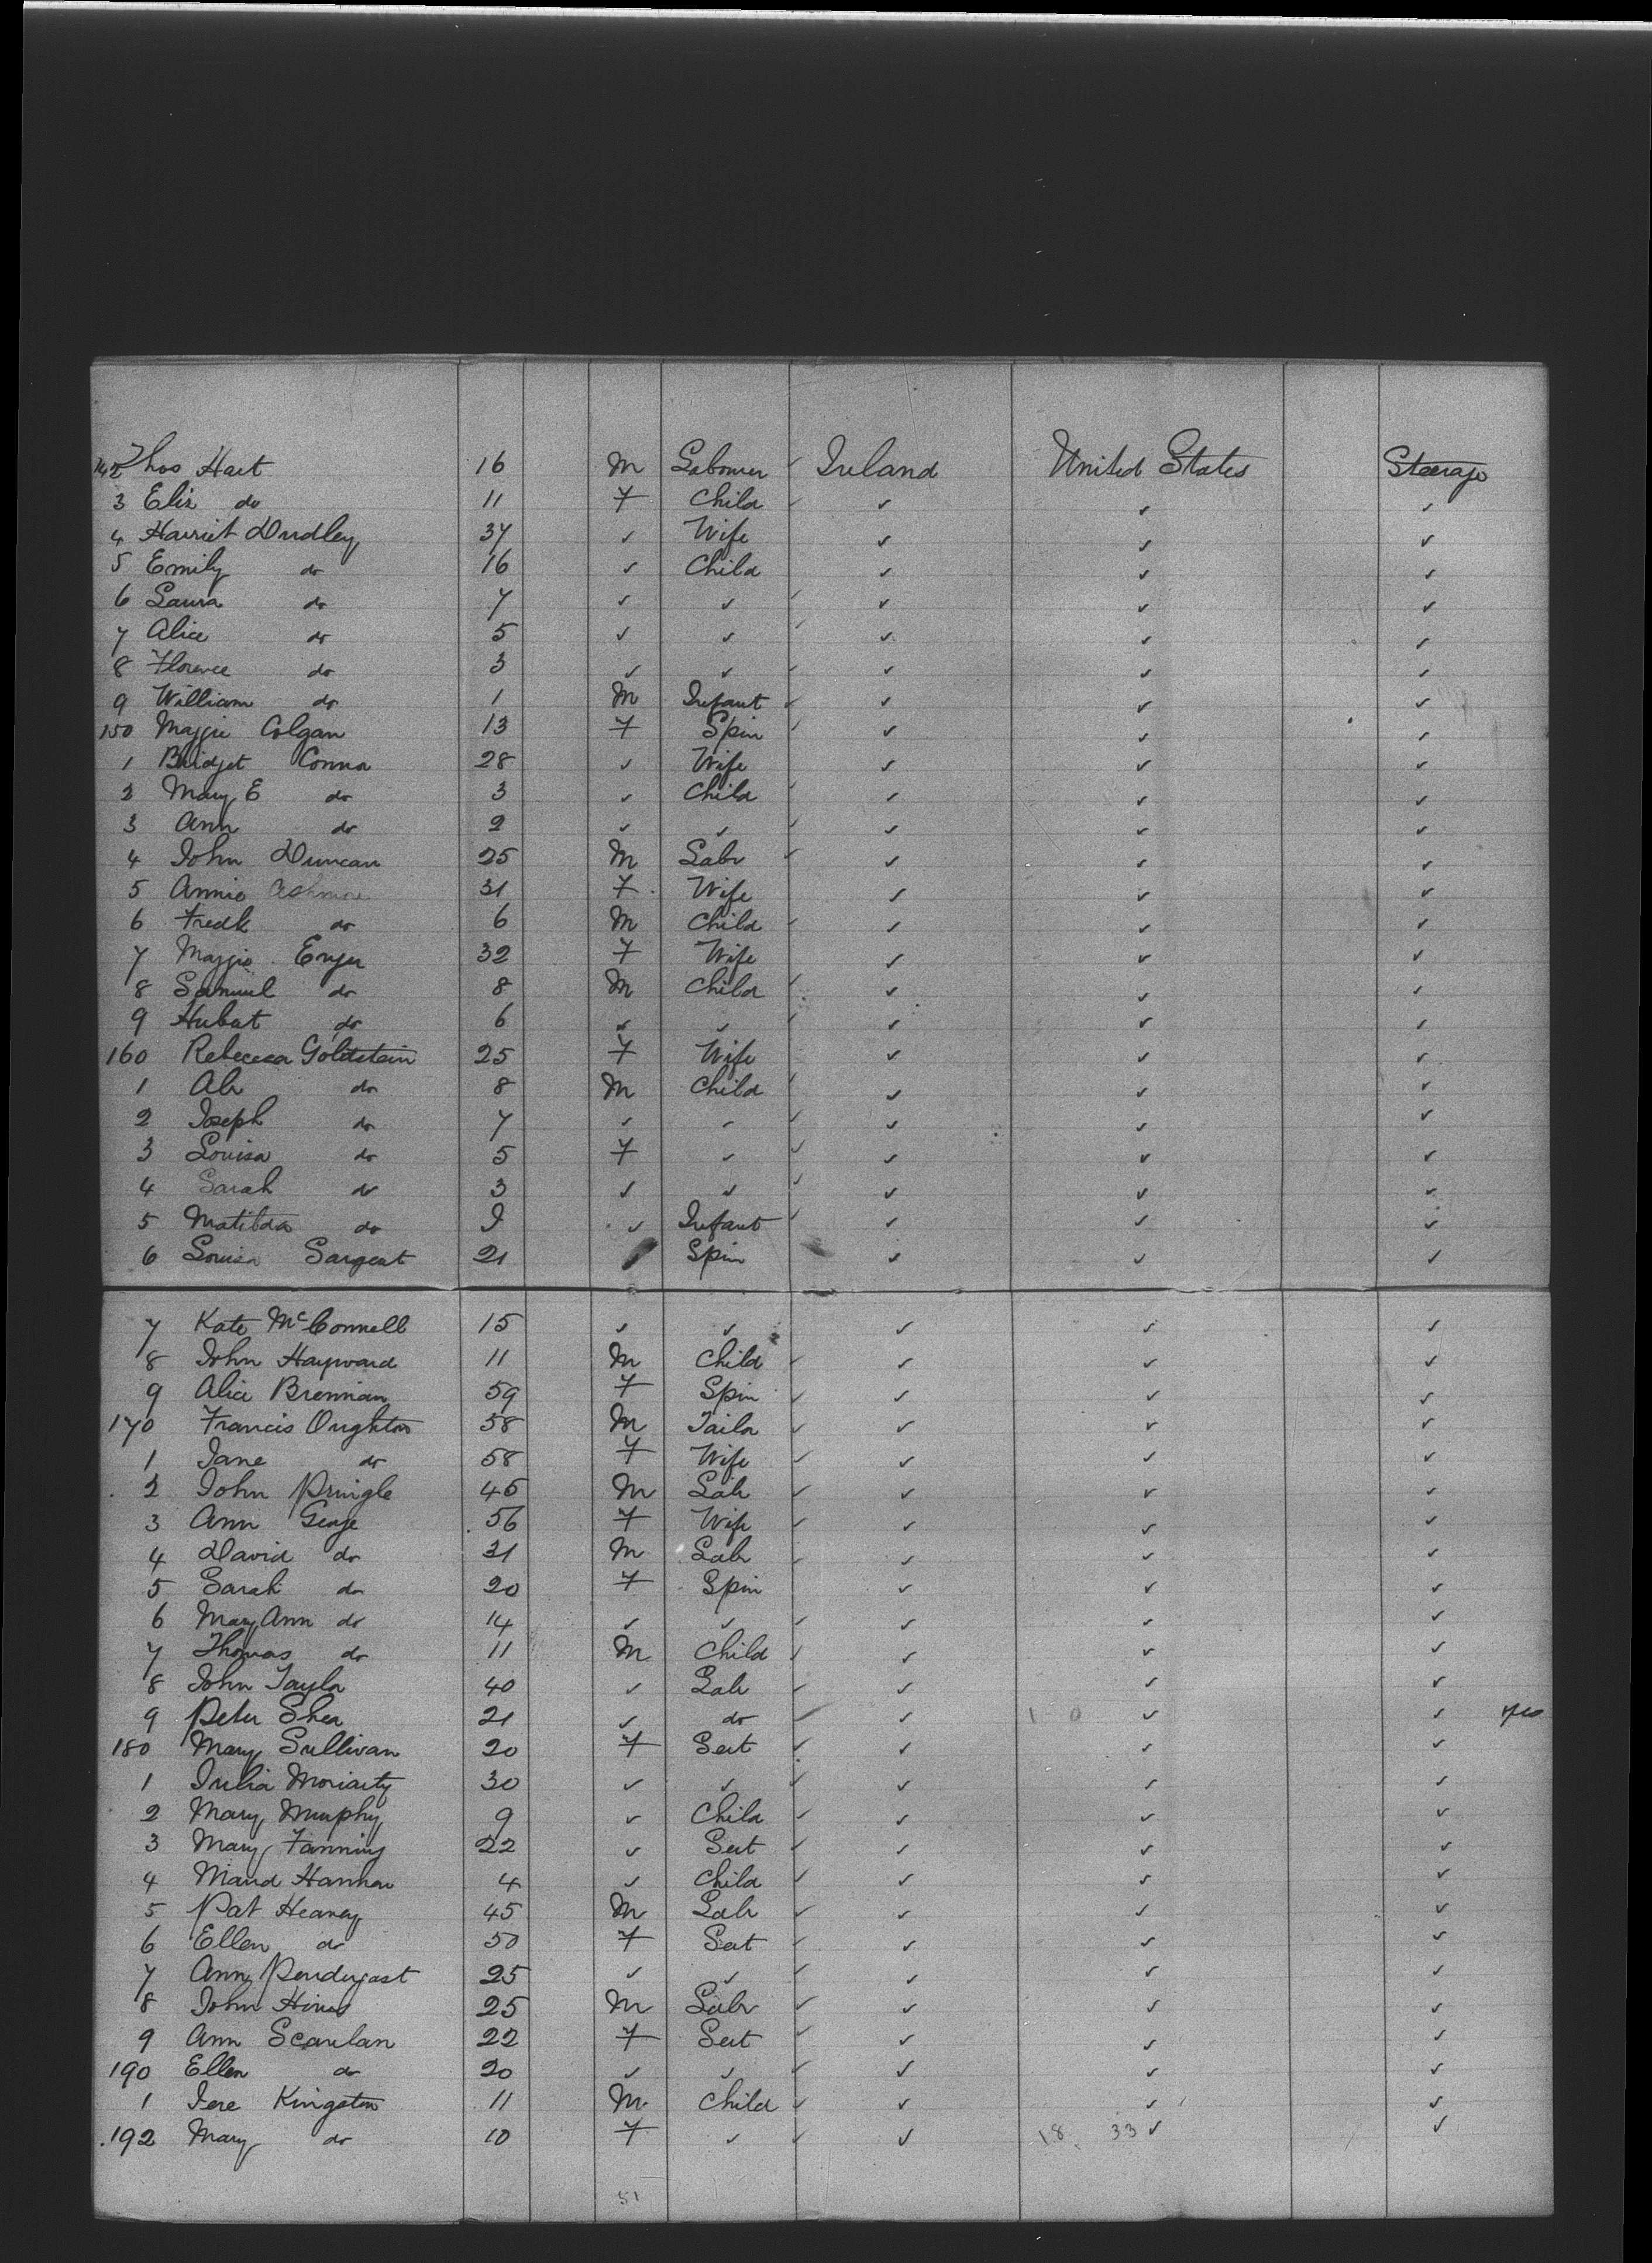 142 Thos Hart 16 M Labourer ✓ Ireland United States Steerage
3 Eliz do 11 F Child ✓ ✓ ✓ ✓
4 Harriet Dudley 37 ✓ Wife ✓ ✓ ✓
5 Emily do 16 ✓ Child ✓ ✓ ✓
6 Laura do 7 ✓ ✓ ✓ ✓ ✓ ✓
7 Alice do 5 ✓ ✓ ✓ ✓ ✓ ✓
8 Florence do 3 ✓ ✓ ✓ ✓ ✓ ✓
9 William do 1 M Infant ✓ ✓ ✓ ✓
150 Maggie Colgan 13 F Spin ✓ ✓ ✓ ✓
1 Bridget Connor 28 ✓ Wife ✓ ✓ ✓
2 Mary E do 3 ✓ Child ✓ ✓ ✓ ✓
3 Ann do 2 ✓ ✓ ✓ ✓ ✓ ✓
4 John Duncan 25 M Labr ✓ ✓ ✓ ✓
5 Annie Ashmore 31 F Wife ✓ ✓ ✓
6 Fredk do 6 M Child ✓ ✓ ✓ ✓
7 Maggie 32 F Wife ✓ ✓ ✓
8 Samuel do 8 M Child ✓ ✓ ✓ ✓
9 Hubat do 6 ✓ ✓ ✓ ✓ ✓ ✓
160 Rebecca Goldstein 25 F Wife ✓ ✓ ✓
1 Abr do 8 M Child ✓ ✓ ✓ ✓
2 Joseph do 7 ✓ ✓ ✓ ✓ ✓ ✓
3 Louisa do 5 F ✓ ✓ ✓ ✓ ✓
4 Sarah do 3 ✓ ✓ ✓ ✓ ✓ ✓
5 Matilda do ✓ Infant ✓ ✓ ✓ ✓
6 Louisa Sargent 21 ✓ Spin ✓ ✓ ✓
7 Kate McConnell 15 ✓ ✓ ✓ ✓ ✓
8 John Hayward 11 M Child ✓ ✓ ✓ ✓
9 Alice Brennan 59 F Spin ✓ ✓ ✓ ✓
170 Francis Oughton 58 M Tailor ✓ ✓ ✓ ✓
1 Jane do 58 F Wife ✓ ✓ ✓ ✓
2 John Pringle 45 M Labr ✓ ✓ ✓ ✓
3 Ann George 56 F Wife ✓ ✓ ✓ ✓
4 David do 31 M Labr ✓ ✓ ✓ ✓
5 Sarah do 20 F Spin ✓ ✓ ✓
6 Mary Ann do 14 ✓ ✓ ✓ ✓ ✓ ✓
7 Thomas do 11 M Child ✓ ✓ ✓ ✓
8 John Taylor 40 ✓ Labr ✓ ✓ ✓ ✓
9 Peter Shea 21 ✓ do ✓ ✓ 1 0 ✓ ✓
180 Mary Sullivan 20 F Sert ✓ ✓ ✓ ✓
1 Julia Moriarty 30 ✓ ✓ ✓ ✓ ✓ ✓
2 Mary Murphy 9 ✓ Child ✓ ✓ ✓ ✓
3 Mary Fanning 22 ✓ Sert ✓ ✓ ✓ ✓
4 Maud Hannan 4 ✓ Child ✓ ✓ ✓ ✓
5 Pat Heaney 45 M Labr ✓ ✓ ✓ ✓
6 Ellen do 50 F Sert ✓ ✓ ✓ ✓
7 Ann Pendergast 25 ✓ ✓ ✓ ✓ ✓ ✓
8 John Hines 25 M Labr ✓ ✓ ✓ ✓
9 Ann Scanlan 22 F Sert ✓ ✓ ✓ ✓
190 Ellen do 20 ✓ ✓ ✓ ✓ ✓ ✓
1 Jere Kingston 11 M Child ✓ ✓ ✓ ✓
192 Mary do 10 F ✓ ✓ ✓ 18 33 ✓ ✓
51